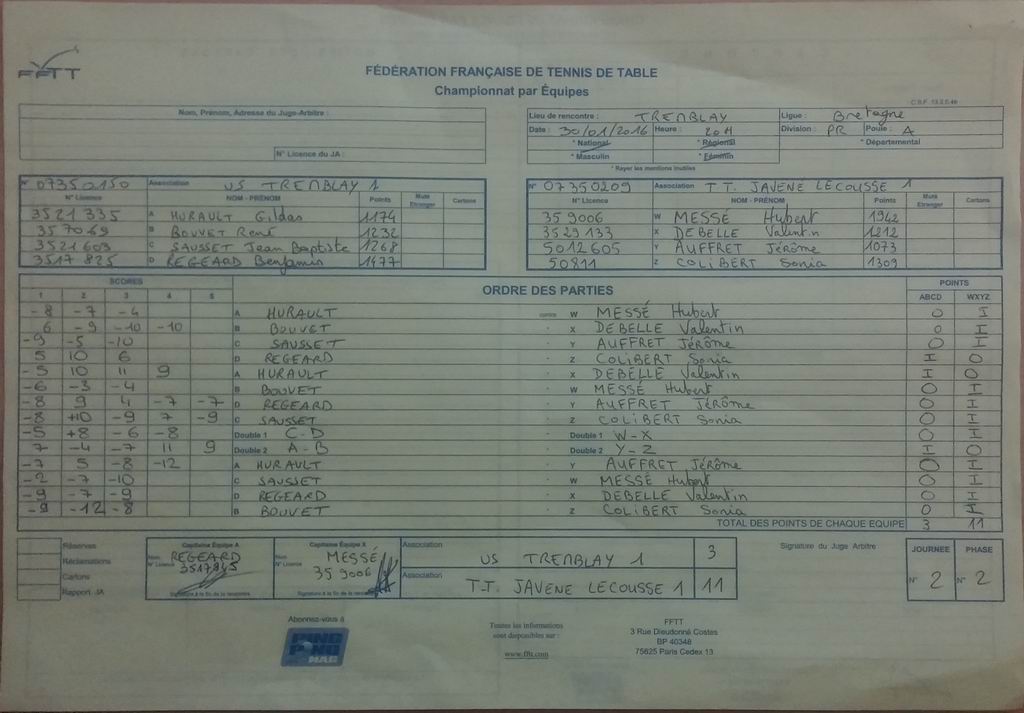 FFTT
FÉDÉRATION FRANÇAISE DE TENNIS DE TABLE
Championnat par Équipes
Nom, Prénom, Adresse du Juge-Arbitre :
N° Licence du JA :
Lieu de rencontre : TREMBLAY Ligue : Bretagne
Date : 30/01/2016 Heure : 20H Division : PR Poule : A
* National * Régional * Départemental
* Masculin * Féminin
* Rayer les mentions inutiles
N° 07350150 Association US TREMBLAY 1
N° Licence NOM - PRÉNOM Points Muté Etranger Cartons
3521335 A HURAULT Gildas 1174
357069 B BOUVET René 1232
3521609 C SAUSSET Jean Baptiste 1268
3517825 D REGEARD Benjamin 1477
N° 07350209 Association T T. JAVENÉ LECOUSSE 1
N° Licence NOM - PRÉNOM Points Muté Etranger Cartons
359006 W MESSÉ Hubert 1942
3529133 X DEBELLE Valentin 1212
5012605 Y AUFFRET Jérôme 1073
50811 Z COLIBERT Sonia 1309
SCORES ORDRE DES PARTIES POINTS
1 2 3 4 5 ABCD WXYZ
-8 -7 -4 A HURAULT contre W MESSÉ Hubert O I
6 -9 -10 -10 B BOUVET - X DEBELLE Valentin O I
-9 -5 -10 C SAUSSET - Y AUFFRET Jérôme O I
5 10 6 D REGEARD - Z COLIBERT Sonia I O
-5 10 11 9 A HURAULT - X DEBELLE Valentin I O
-6 -3 -4 B BOUVET - W MESSÉ Hubert O I
-8 9 4 -7 -7 D REGEARD - Y AUFFRET Jérôme O I
-8 +10 -9 7 -9 C SAUSSET - Z COLIBERT Sonia O I
-5 +8 -6 -8 Double 1 C-D - Double 1 W-X O I
7 -4 -7 11 9 Double 2 A-B - Double 2 Y-Z I O
-7 5 -8 -12 A HURAULT - Y AUFFRET Jérôme O I
-2 -7 -10 C SAUSSET - W MESSÉ Hubert O I
-9 -7 -9 D REGEARD - X DEBELLE Valentin O I
-9 -12 -8 B BOUVET - Z COLIBERT Sonia O I
TOTAL DES POINTS DE CHAQUE EQUIPE 3 11
Réserves
Réclamations
Cartons
Rapport JA
Capitaine Équipe A
Nom REGEARD
N° Licence 3517845
Signature à la fin de la rencontre
Capitaine Équipe X
Nom MESSÉ
N° Licence 359006
Signature à la fin de la rencontre
Association US TREMBLAY 1 3
Association T.T. JAVENE LECOUSSE 1 11
Signature du Juge Arbitre
JOURNEE PHASE
N° 2 N° 2
Abonnez-vous à
PING PONG MAG
Toutes les informations
sont disponibles sur :
www.fftt.com
FFTT
3 Rue Dieudonné Costes
BP 40348
75625 Paris Cedex 13